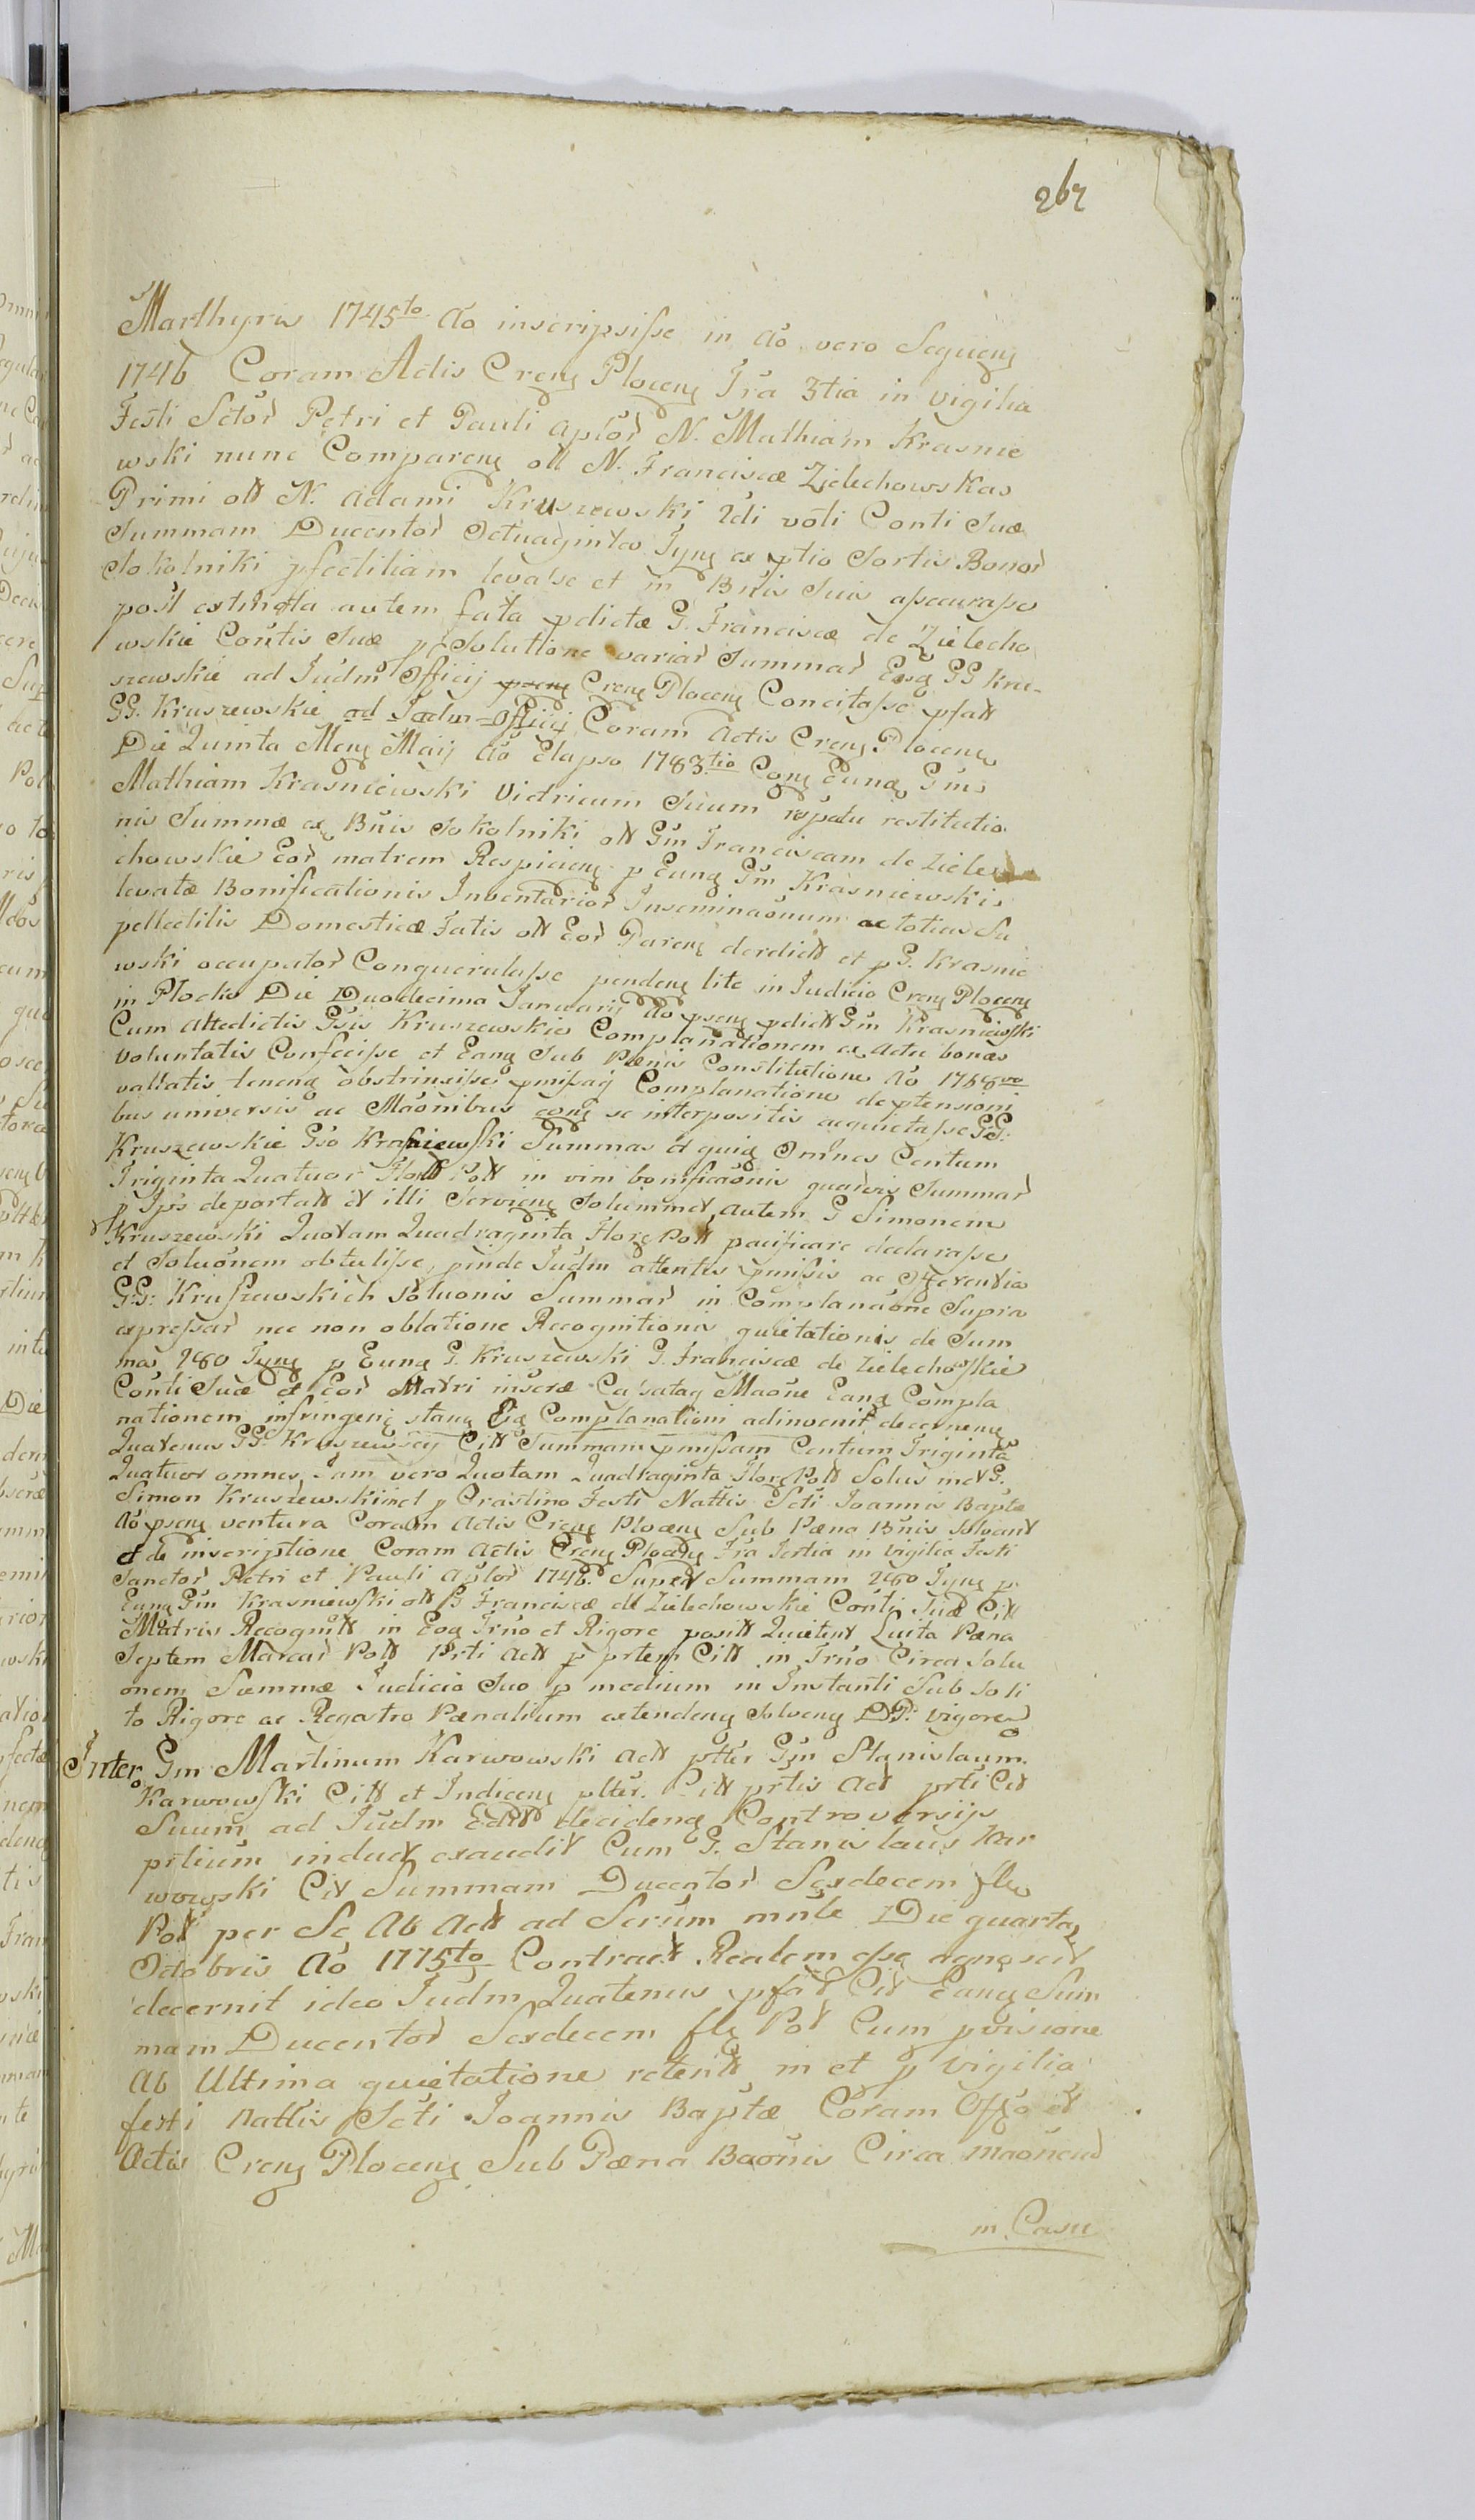 267
Marthyris 1745to Ao inscripsisse in Ao vero Sequenz
1746 Coram Actis Crenz Plocenz Fra 3tia in vigilia
Festi Sctor Petri et Pauli Aptor N. Mathiam Krasnie
wski nunc Comparenz ott N. Franciscæ Zielechowskas
Primi ott N. Adami Kruszewski 2di voti Conti Suæ
Summam Ducentor Octuaginta Tynz ex ptio Sortis Bonor
Sokolniki pfectiliam levasse et in Bnis Suis assecurasse
post extincta autem fata pdictæ G. Franciscæ de Zielecho
wskie Contis Suæ p Solutione variar Summar Eosq GG Kru-
szewskie ad Iudm Officij Crenz Plocenz Concitasse pfatt
GG. Kruszewskie ad Iudm Officij Coram Actis Crenz Plocenz
Die Quinta Menz Maij Ao Elapso 1783tio Conz Eunq Gms
Mathiam Krasniewski Vitricum Suum respectu restitutio
nis Summæ ex Bnis Sokolniki ott Gm Franciscam de Ziele
chowskie Eor matrem Respicienz p Eunq Gm Krasniewski
levatæ Bonificationis Inventarior Inseminaonum ac totius Su
pellectilis Domesticæ Fatis ott Eor Parenz derelict et p G. Krasnie
wski occupator Conquerulasse pendenz lite in Iudicio Crenz Plocenz
in Plocko Die Duodecima Januarij Ao psenz pdictt Gm Krasniewski
Cum Attedictis Gsis Kruszewskie Complanationem ex Actu bonæ
voluntatis Confecisse et Eanq Sub Pænis Constitutione Ao 1768vo
vallatis tenenq obstrinxisse pmissaq Complanatione de ptensioni
bus universis ac Maonibus conz se interpositis acquietasse GG:
Kruszewskie Gso Krasniewski Summas et quiq Omnes Centum
Triginta Quatuor Flott Pott in vim bonificaonis quarvis Summar
p Ips deportatt et illi Servienz Solummet, autem G Simonem
Kruszewski Quotam Quadraginta Flore Pott pacificare declarasse
et Soluonem obtulisse, pinde Iudm attentis pmissis ac Offerentia
GG: Kruszewskich Soluonis Summar in Complanaone Supra
expressar nec non oblatione Recognitionis quietationis de Sum
mas 280 Tynz p Eunq G. Kruszewski G. Franciscæ de Zielechowskie
Conti Suæ et Eor Matri inscræ Cassataq Maone Eanq Compla
nationem infringenz stanz Eiq Complanationi adinvenit decernenz
Quatenus GG. Kruszewscy Citt Summam pmissam Centum Triginta
Quatuor omnes, Iam vero Quotam Quadraginta Flore Pott Solus met G.
Simon Kruszewski in et p Crastino Festi Nattis Scti Joannis Baptæ
Ao psenz ventura Coram Actis Crenz Plocenz Sub Pæna Bnis Solvant
et de inscriptione Coram Actis Crenz Plocenz Fra Tertia in Vigilia Festi
Sanctor Petri et Pauli Aplor 1746. Super Summam 280 Tynz p
Eunq Gm Krasniewski ott G Franciscæ de Zielechowskie Conti Suæ Citt
Matris Recognitt in Eoq Trno et Rigore positt Quietent Luita Pæna
Septem Marcar Pott Prti Actt p prtem Citt in Trno Circa Solu
onem Summæ Iudicio Suo p medium in Instanti Sub Soli
to Rigore ac Regestro Pænalium extendenz Solvenz DP: vigore
Inter Gm Martinum Karwowski Actt pttér Gm Stanislaum
Karwowski Citt et Indicenz pltér. Citt prtis Act prti Cit
Suum ad Iudm Editt decidenq Controversijs
prtium induct exaudit Cum G. Stanislaus Kar
wowski Cit Summam Ducentor Sexdecem fle
Pott per Se Ab Actt ad Serum mnle Die quarta
Octobris Ao 1775to Contract Realem esse agnoscit
decernit ideo Iudm Quatenus pfat Cit Eanq Sum
mam Ducentor Sexdecem fle Pot Cum pvisione
Ab Ultima quietatione retentt in et p Vigilia
festi Nattis Scti Joannis Baptæ Coram Offo et
Actis Crenz Plocenz Sub Pæna Baonis Circa maonem
in Casu